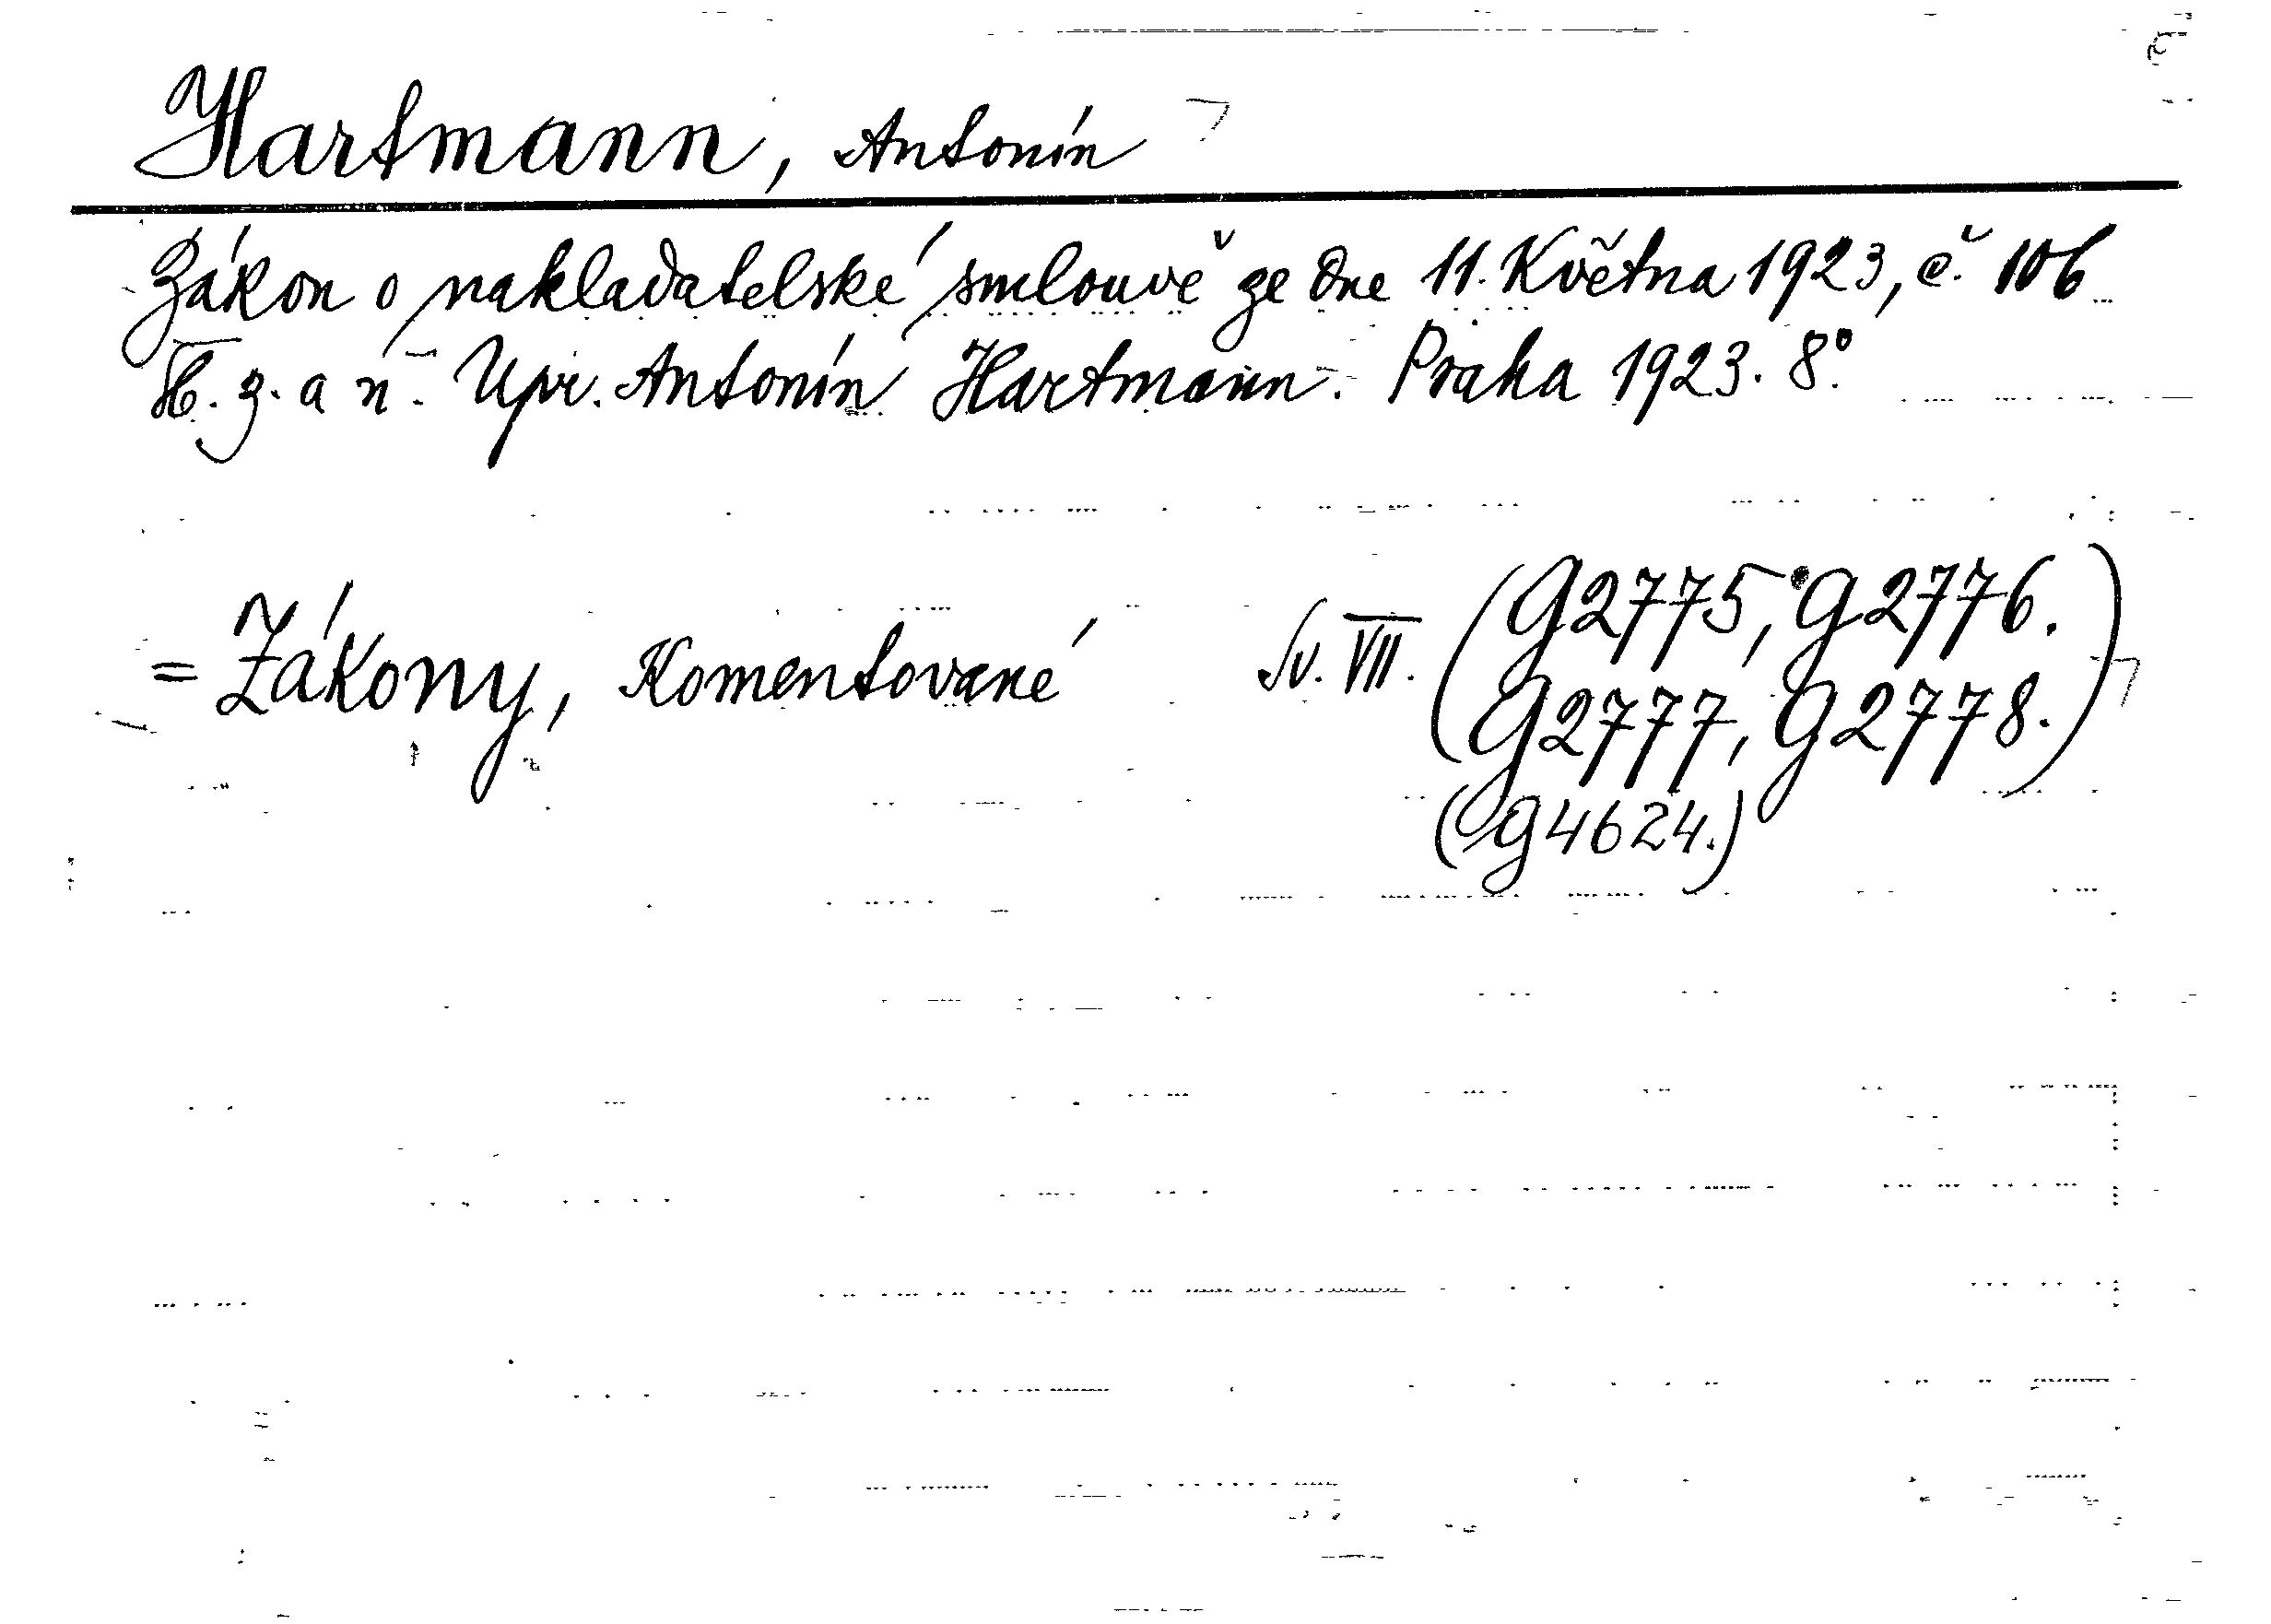 Hartmann, Antonín
Zákon o nakladatelské smlouvě ze dne 11. Května 1923, č. 106
Sb. z. a n. Upr. Antonín Hartmann. Praha 1923. 8°.
= Zákony, Komentované Sv. VII. (G2775, G2776.
G2777, G2778.)
(G4624.)